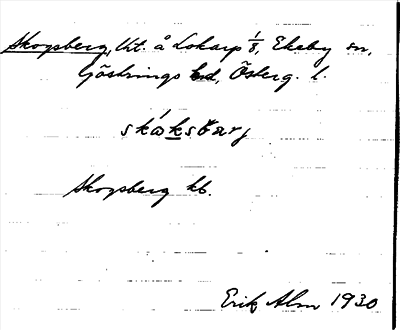 Skogsberg, lht. å Lokarp 1/8, Ekeby sn,
Göstrings hd, Österg. l.
skáksbærj
Skogsberg kb.
Erik Alm 1930